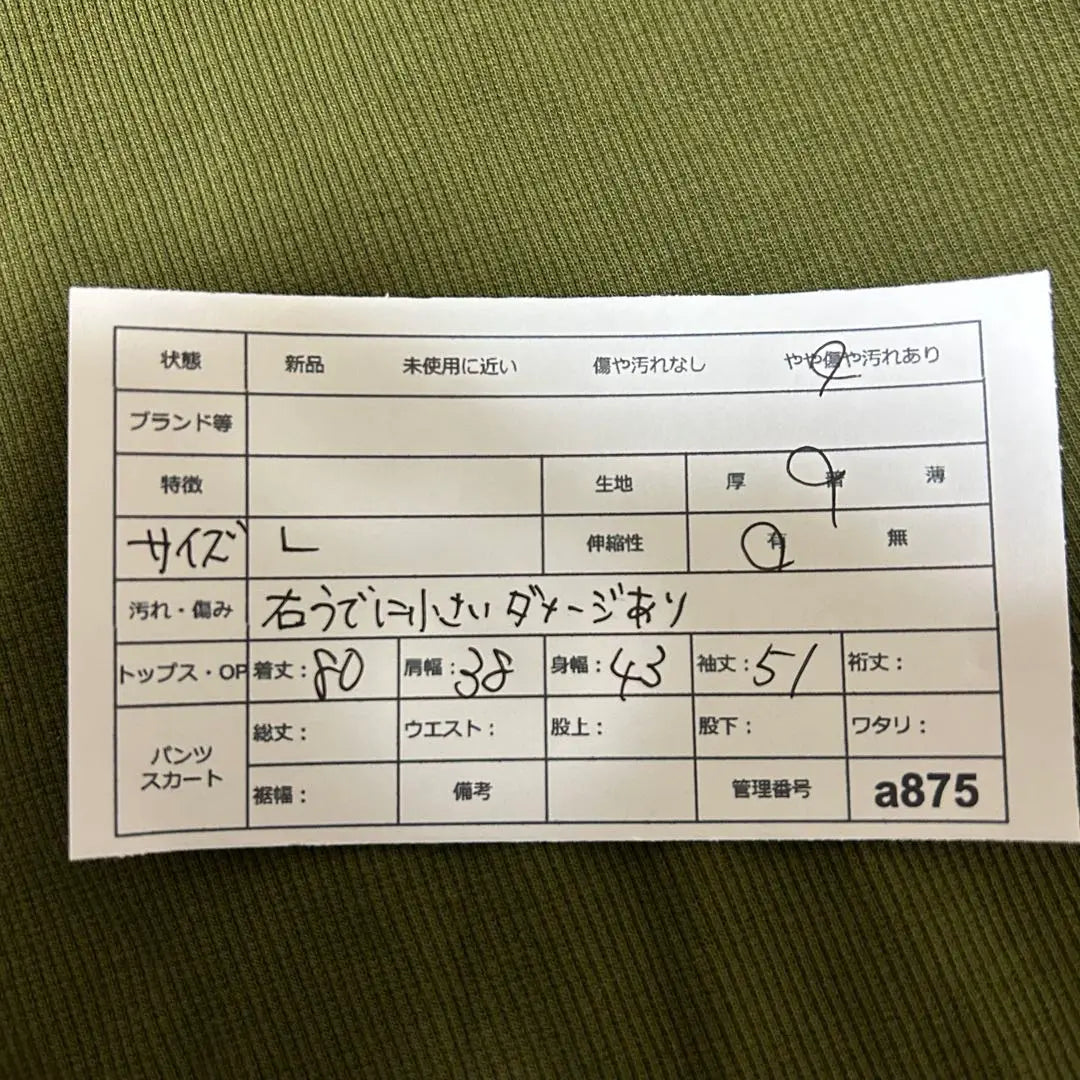 状態 新品 未使用に近い 傷や汚れなし やや傷や汚れあり
ブランド等
特徴 生地 厚 普 薄
サイズ L 伸縮性 有 無
汚れ・傷み 右うでに小さいダメージあり
トップス・OP 着丈:80 肩幅:38 身幅:43 袖丈:51 裄丈:
パンツ スカート 総丈: ウエスト: 股上: 股下: ワタリ:
裾幅: 備考 管理番号 a875